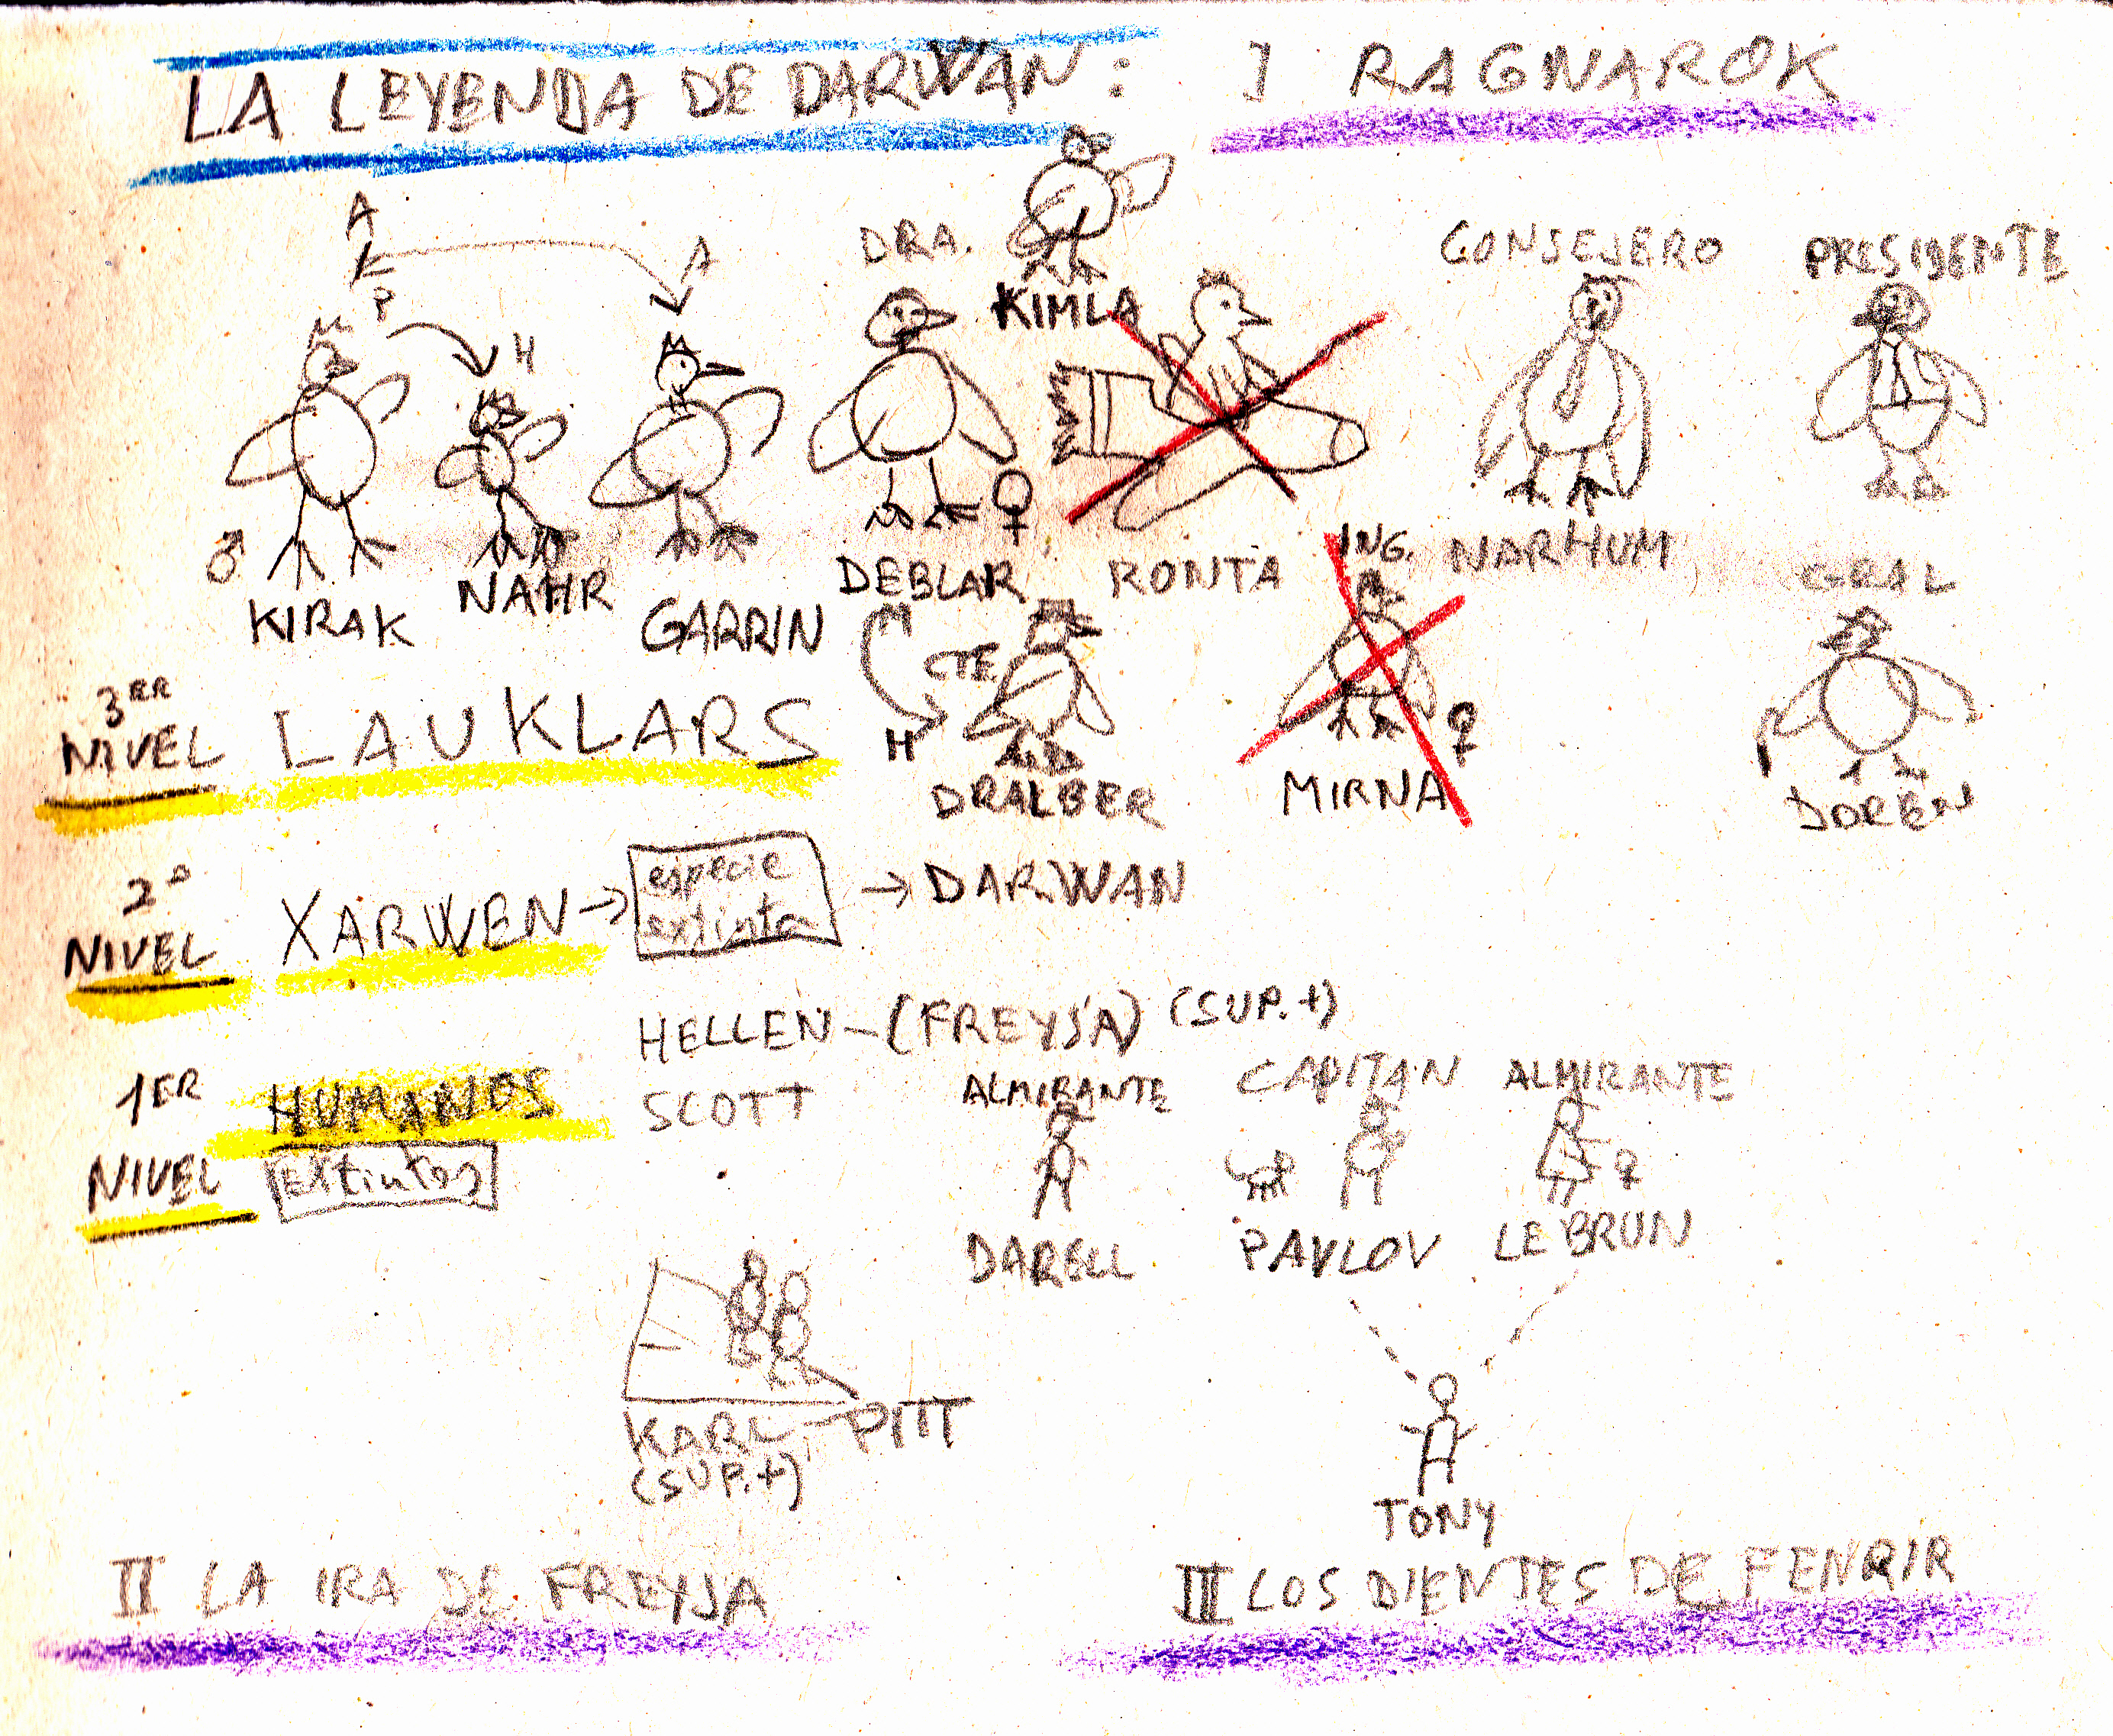 LA LEYENDA DE DARWAN: I RAGNAROK
A
P
H
A
DRA.
KIMLA
CONSEJERO
PRESIDENTE
♂
KIRAK
NAHR
GARRIN
DEBLAR
♀
RONTA
NARHUM
ING.
MIRNA
♀
GRAL
DOREN
CTE
H
DRALBER
3ER
NIVEL
LAUKLARS
2º
NIVEL
XARWEN → especie
extinta → DARWAN
1ER
NIVEL
HUMANOS
Extintos
HELLEN - (FREYJA) (SUP.+)
SCOTT
ALMIRANTE
DARELL
CAPITAN
PAVLOV
ALMIRANTE
LEBRUN
♀
KARL - PITT
(SUP.+)
TONY
II LA IRA DE FREYJA
III LOS DIENTES DE FENRIR